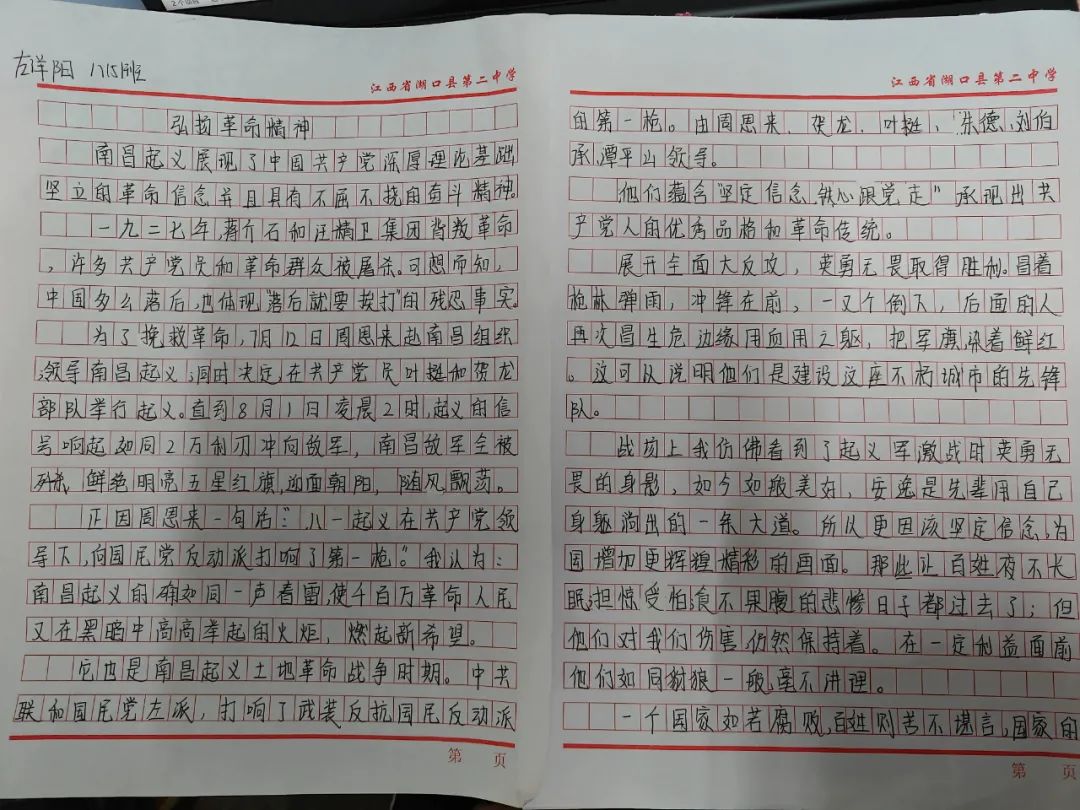 左洋阳 1715班
江西省湖口县第二中学
弘扬革命精神
南昌起义展现了中国共产党深厚理论基础,
坚立的革命信念并且具有不屈不挠的奋斗精神。
一九二七年,蒋介石和汪精卫集团背叛革命
,许多共产党员和革命群众被屠杀。可想而知,
中国多么落后,也体现"落后就要挨打"的残忍事实。
为了挽救革命,7月12日周恩来赴南昌组织
,领导南昌起义;同时决定,在共产党员叶挺和贺龙
部队举行起义。直到8月1日凌晨2时,起义的信
号响起如同2万利刃冲向敌军,南昌敌军全被
歼灭 鲜艳明亮五星红旗,迎面朝阳,随风飘荡。
正因周恩来一句话:"八一起义在共产党领
导下,向国民党反动派打响了第一枪。"我认为:
南昌起义的确如同一声春雷,使千百万革命人民
又在黑暗中高高举起的火炬,燃起新希望。
它也是南昌起义土地革命战争时期。中共
联和国民党左派,打响了武装反抗国民反动派
第 页
江西省湖口县第二中学
的第一枪。由周恩来、贺龙、叶挺、朱德、刘伯
承,谭平山领导。
他们蕴含"坚定信念,铁心跟党走"承现出共
产党人的优秀品格和革命传统。
展开全面大反攻,英勇无畏取得胜利。冒着
枪林弹雨,冲锋在前,一又个倒下,后面的人
再次冒生危边缘用血用之躯,把军旗染着鲜红
。这可从说明他们是建设这座不朽城市的先锋
队。
战场上我仿佛看到了起义军激战时英勇无
畏的身影,如今如般美好,安逸是先辈用自己
身躯淌出的一条大道。所从更因该坚定信念,为
国增加更辉煌精移的画面。那些让百姓夜不长
眠,担惊受怕,食不果腹的悲惨日子都过去了;但
他们对我们伤害,仍然保持着。在一定利益面前
他们如同豺狼一般,毫不讲理。
一个国家如若腐败,百姓则苦不堪言,国家的
第 页